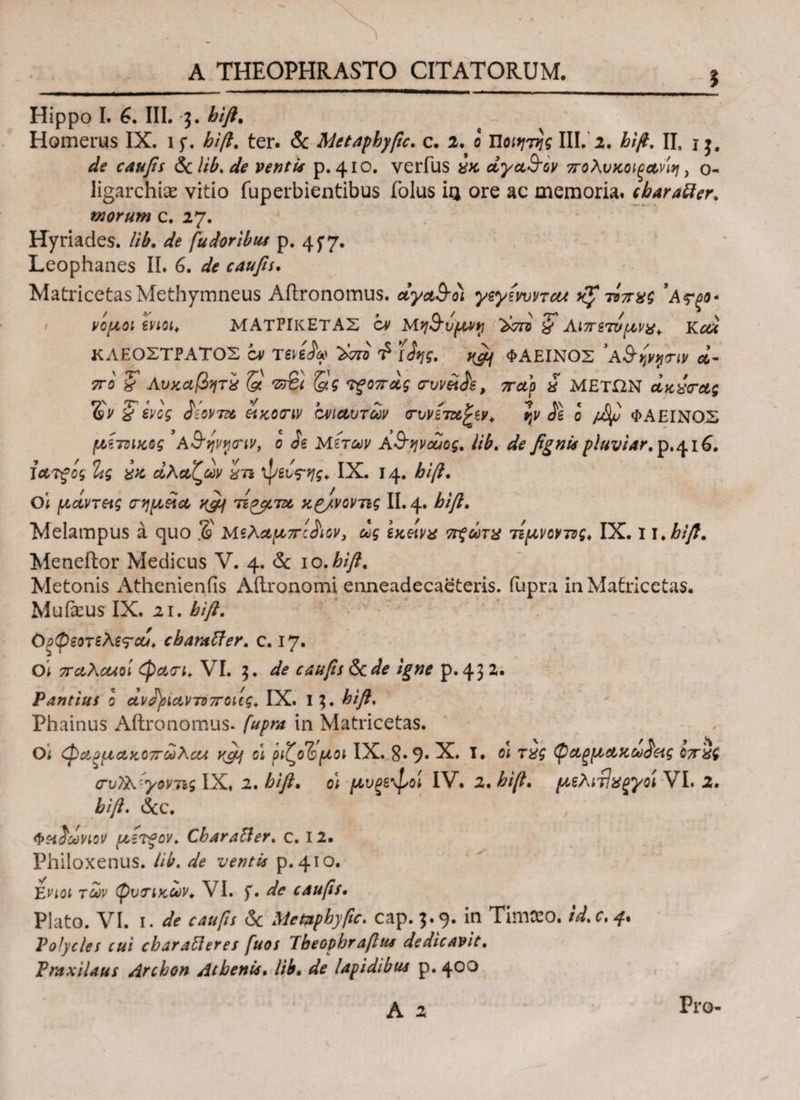 A THEOPHRASTO CITATORUM. 3
Hippo I. 6. III. 3. hiſt.
Homerus IX. 15. hiſt. ter. & Metaphyſic. c. 2. ὁ Ποιητὴς III. 2. hiſt. II. 13.
de cauſis & lib. de ventis p. 410. verſus ȣκ ἀγαθὸν πολυκοιρανίη, o-
ligarchiæ vitio ſuperbientibus ſolus in ore ac memoria. character.
morum c. 27.
Hyriades. lib. de ſudoribus p. 457.
Leophanes II. 6. de cauſis.
Matricetas Methymneus Aſtronomus. ἀγαθοὶ γεγένυνται καὶ τόπȣς Ἀστρο-
νόμοι ἔνιοι. ΜΑΤΡΙΚΕΤΑΣ ἐν Μηθύμνῃ ἀπὸ τȣ͂ Λιπετύμνȣ. Καὶ
ΚΛΕΟΣΤΡΑΤΟΣ ἐν Τενέδῳ ἀπὸ τῆς ἴδης. καὶ ΦΑΕΙΝΟΣ Ἀθήνησιν ἀ-
πὸ τȣ͂ Λυκαβητȣ͂ τὰ περὶ τὰς τροπὰς συνεῖδε, παρ ȣ͂ ΜΕΤΩΝ ἀκȣ́σας
τὸν τȣ͂ ἑνὸς δέοντα εἴκοσιν ἐνιαυτῶν συνέταξεν. ἦν δὲ ὁ μὲν ΦΑΕΙΝΟΣ
μέτοικος Ἀθήνησιν, ὁ δὲ Μέτων Ἀθηναῖος. lib. de ſignis pluviar. p. 416.
ἰατρός τις ȣκ ἀλαζὼν ȣτε ψεύστης. IX. 14. hiſt.
Οἱ μάντεις σημεῖα καὶ τέρατα κρίνοντες II. 4. hiſt.
Melampus à quo τὸ Μελαμπόδιον, ὡς ἐκείνȣ πρώτȣ τέμνοντος. IX. 11. hiſt.
Meneſtor Medicus V. 4. & 10. hiſt.
Metonis Athenienſis Aſtronomi enneadecaëteris. ſupra in Matricetas.
Muſæus IX. 21. hiſt.
Ὀρφεοτελεσταί. character. c. 17.
Οἱ παλαιοί φασι. VI. 3. de cauſis & de igne p. 432.
Pantius ὁ ἀνδριαντοποιός. IX. 13. hiſt.
Phainus Aſtronomus. ſupra in Matricetas.
Οἱ φαρμακοπῶλαι καὶ οἱ ῥιζοτόμοι IX. 8. 9. X. 1. οἱ τȣ̀ς φαρμακώδεις ὀπȣ̀ς
συλλέγοντες IX. 2. hiſt. οἱ μυρεψοὶ IV. 2. hiſt. μελιτȣργοὶ VI. 2.
hiſt. &c.
Φειδώνιον μέτρον. Character. c. 12.
Philoxenus. lib. de ventis p. 410.
Ἔνιοι τῶν φυσικῶν. VI. 5. de cauſis.
Plato. VI. 1. de cauſis & Metaphyſic. cap. 3. 9. in Timæo. id. c. 4.
Polycles cui characteres ſuos Theophraſtus dedicavit.
Praxilaus Archon Athenis. lib. de lapidibus p. 400
A 2 Pro-